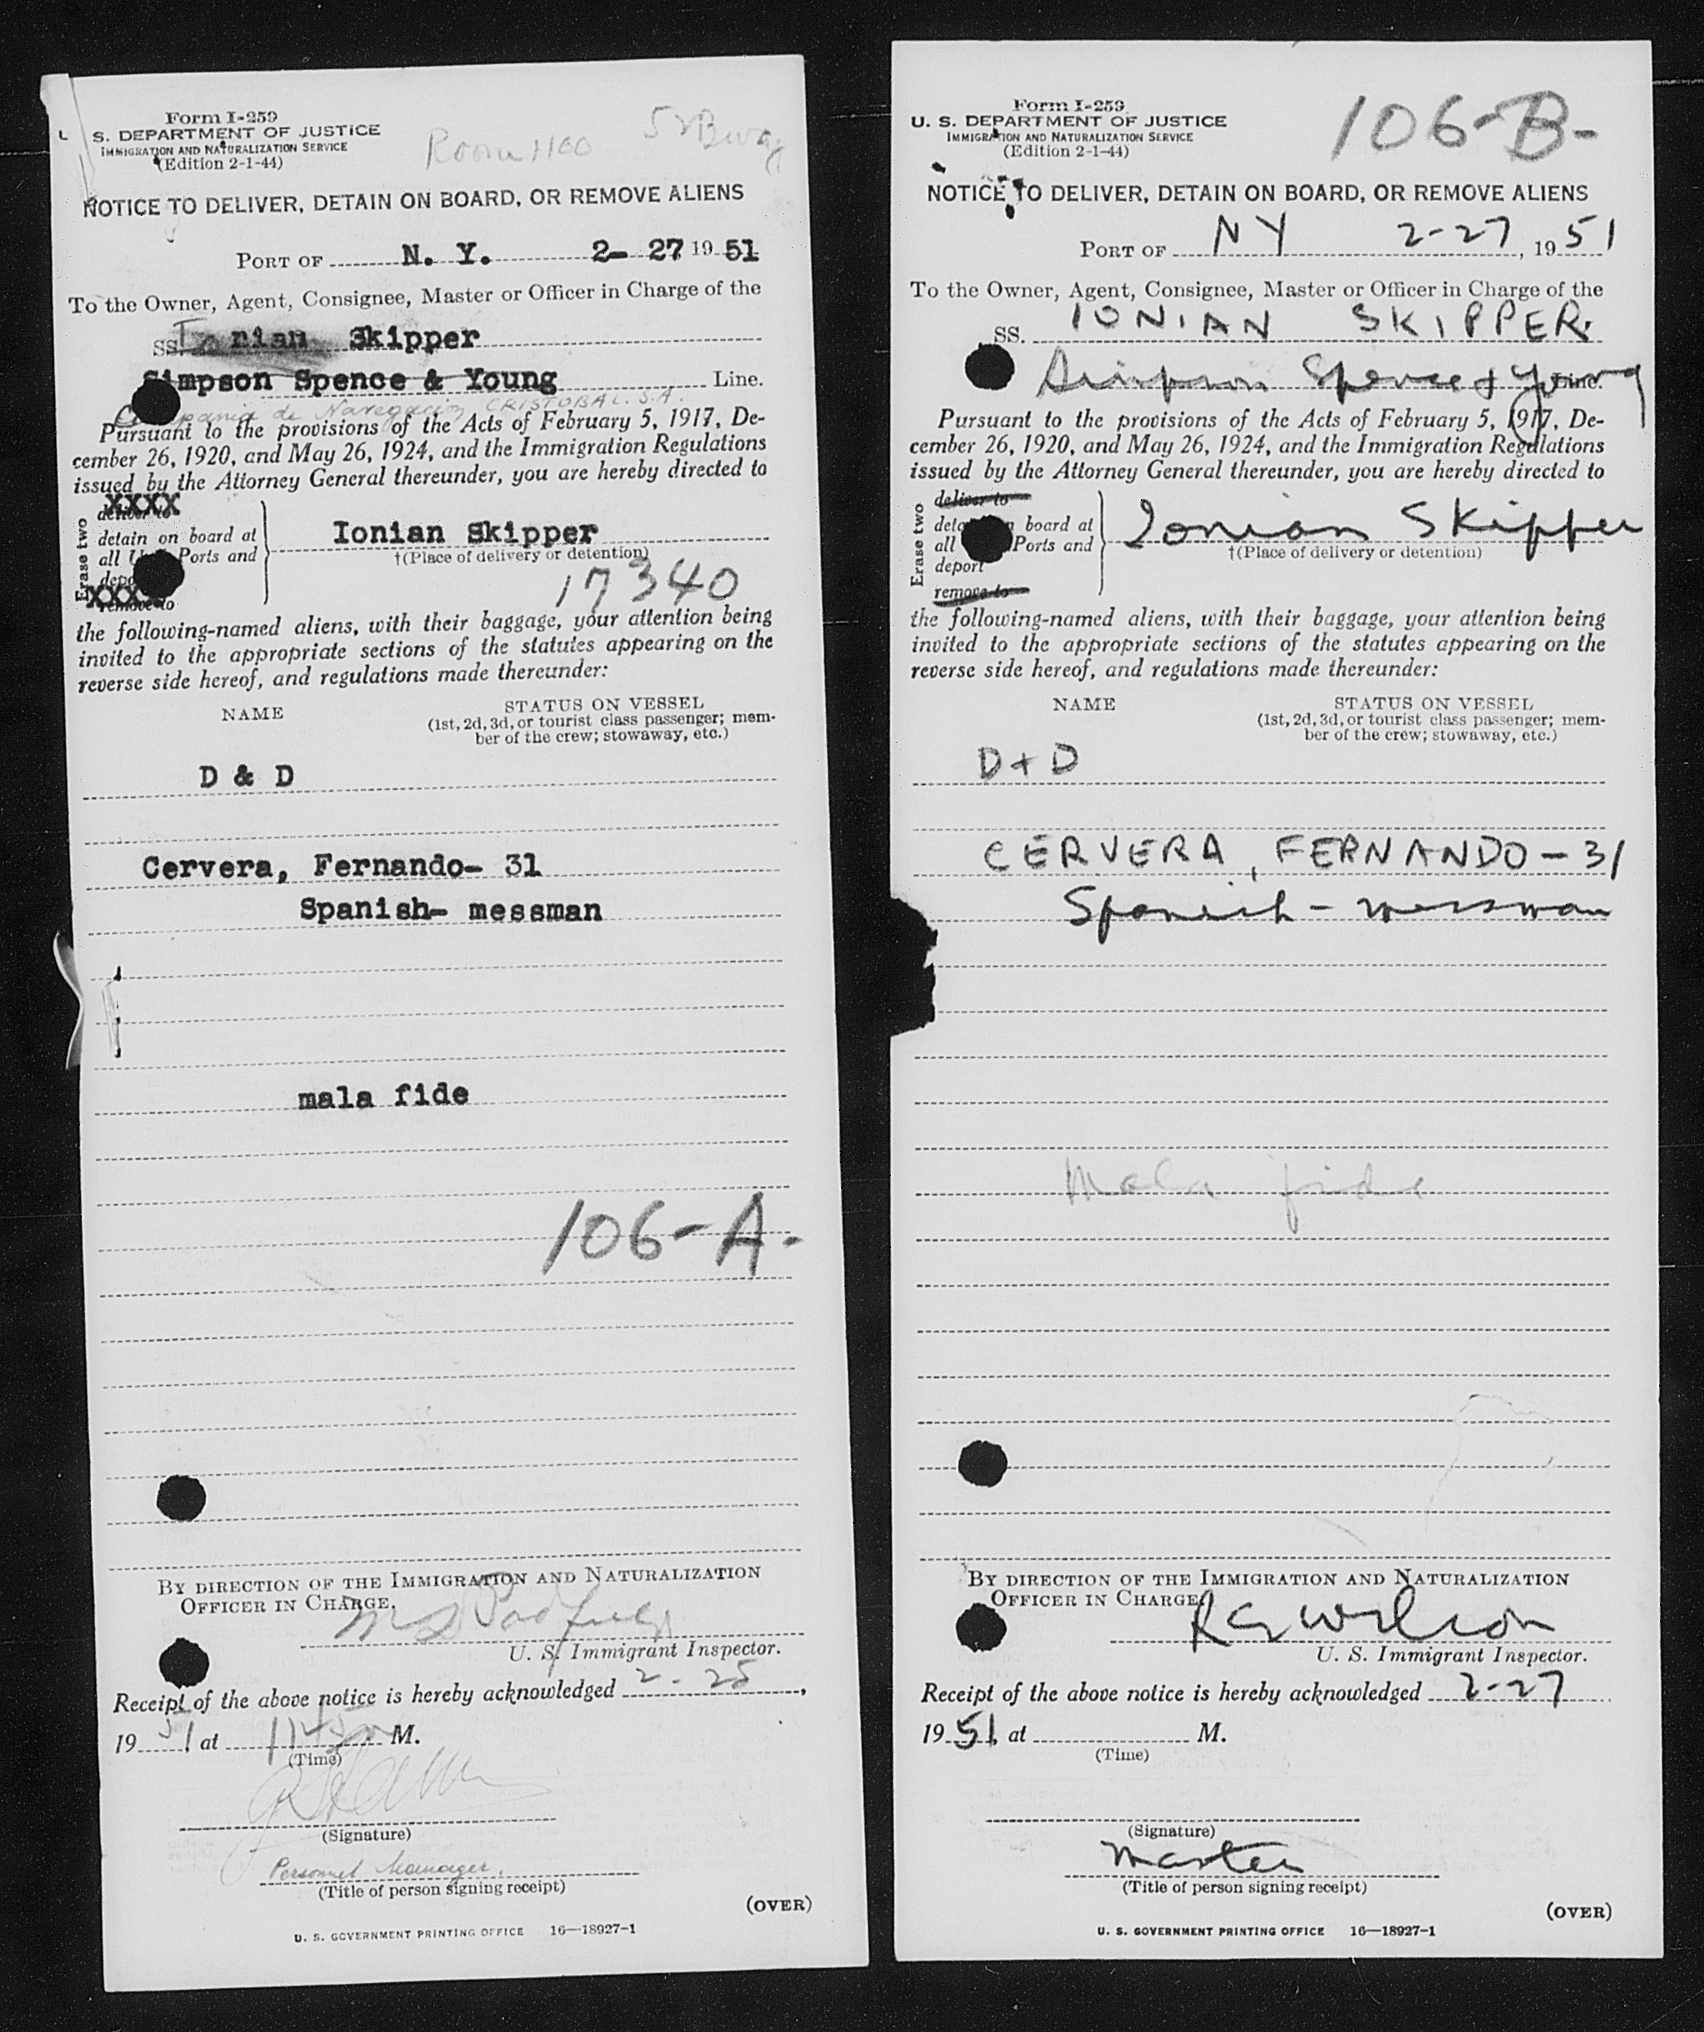 Form I-259
S. DEPARTMENT OF JUSTICE
IMMIGRATION AND NATURALIZATION SERVICE
(Edition 2-1-44)
Room 1100 52 Bway
NOTICE TO DELIVER, DETAIN ON BOARD, OR REMOVE ALIENS
PORT OF N. Y. 2- 27 19 51
To the Owner, Agent, Consignee, Master or Officer in Charge of the
SS. Ionian Skipper
Simpson Spence & Young Line.
Compania de Navegacion CRISTOBAL S.A.
Pursuant to the provisions of the Acts of February 5, 1917, De-
cember 26, 1920, and May 26, 1924, and the Immigration Regulations
issued by the Attorney General thereunder, you are hereby directed to
XXXX
Erase two
deliver to
detain on board at
all U Ports and
depo
XXXX
remove to
Ionian Skipper
†(Place of delivery or detention)
17340
the following-named aliens, with their baggage, your attention being
invited to the appropriate sections of the statutes appearing on the
reverse side hereof, and regulations made thereunder:
NAME
STATUS ON VESSEL
(1st, 2d, 3d, or tourist class passenger; mem-
ber of the crew; stowaway, etc.)
D & D
Cervera, Fernando- 31
Spanish- messman
mala fide
106-A.
BY DIRECTION OF THE IMMIGRATION AND NATURALIZATION
OFFICER IN CHARGE.
U. S. Immigrant Inspector.
Receipt of the above notice is hereby acknowledged 2-25,
19 51 at M.
(Time)
(Signature)
Personnel Manager.
(Title of person signing receipt)
(OVER)
U. S. GOVERNMENT PRINTING OFFICE 16—18927-1
Form I-259
U. S. DEPARTMENT OF JUSTICE
IMMIGRATION AND NATURALIZATION SERVICE
(Edition 2-1-44)
106-B-
NOTICE TO DELIVER, DETAIN ON BOARD, OR REMOVE ALIENS
PORT OF NY 2-27, 19 51
To the Owner, Agent, Consignee, Master or Officer in Charge of the
SS. IONIAN SKIPPER.
Simpson Spence & Young Line.
Pursuant to the provisions of the Acts of February 5, 1917, De-
cember 26, 1920, and May 26, 1924, and the Immigration Regulations
issued by the Attorney General thereunder, you are hereby directed to
Erase two
deliver to
detain on board at
all Ports and
deport
remove to
Ionian Skipper
†(Place of delivery or detention)
the following-named aliens, with their baggage, your attention being
invited to the appropriate sections of the statutes appearing on the
reverse side hereof, and regulations made thereunder:
NAME
STATUS ON VESSEL
(1st, 2d, 3d, or tourist class passenger; mem-
ber of the crew; stowaway, etc.)
D + D
CERVERA, FERNANDO - 31
Spanish - messman
Mala fide
BY DIRECTION OF THE IMMIGRATION AND NATURALIZATION
OFFICER IN CHARGE.
R G Wilson
U. S. Immigrant Inspector.
Receipt of the above notice is hereby acknowledged 2-27
19 51, at M.
(Time)
(Signature)
Master
(Title of person signing receipt)
(OVER)
U. S. GOVERNMENT PRINTING OFFICE 16—18927-1